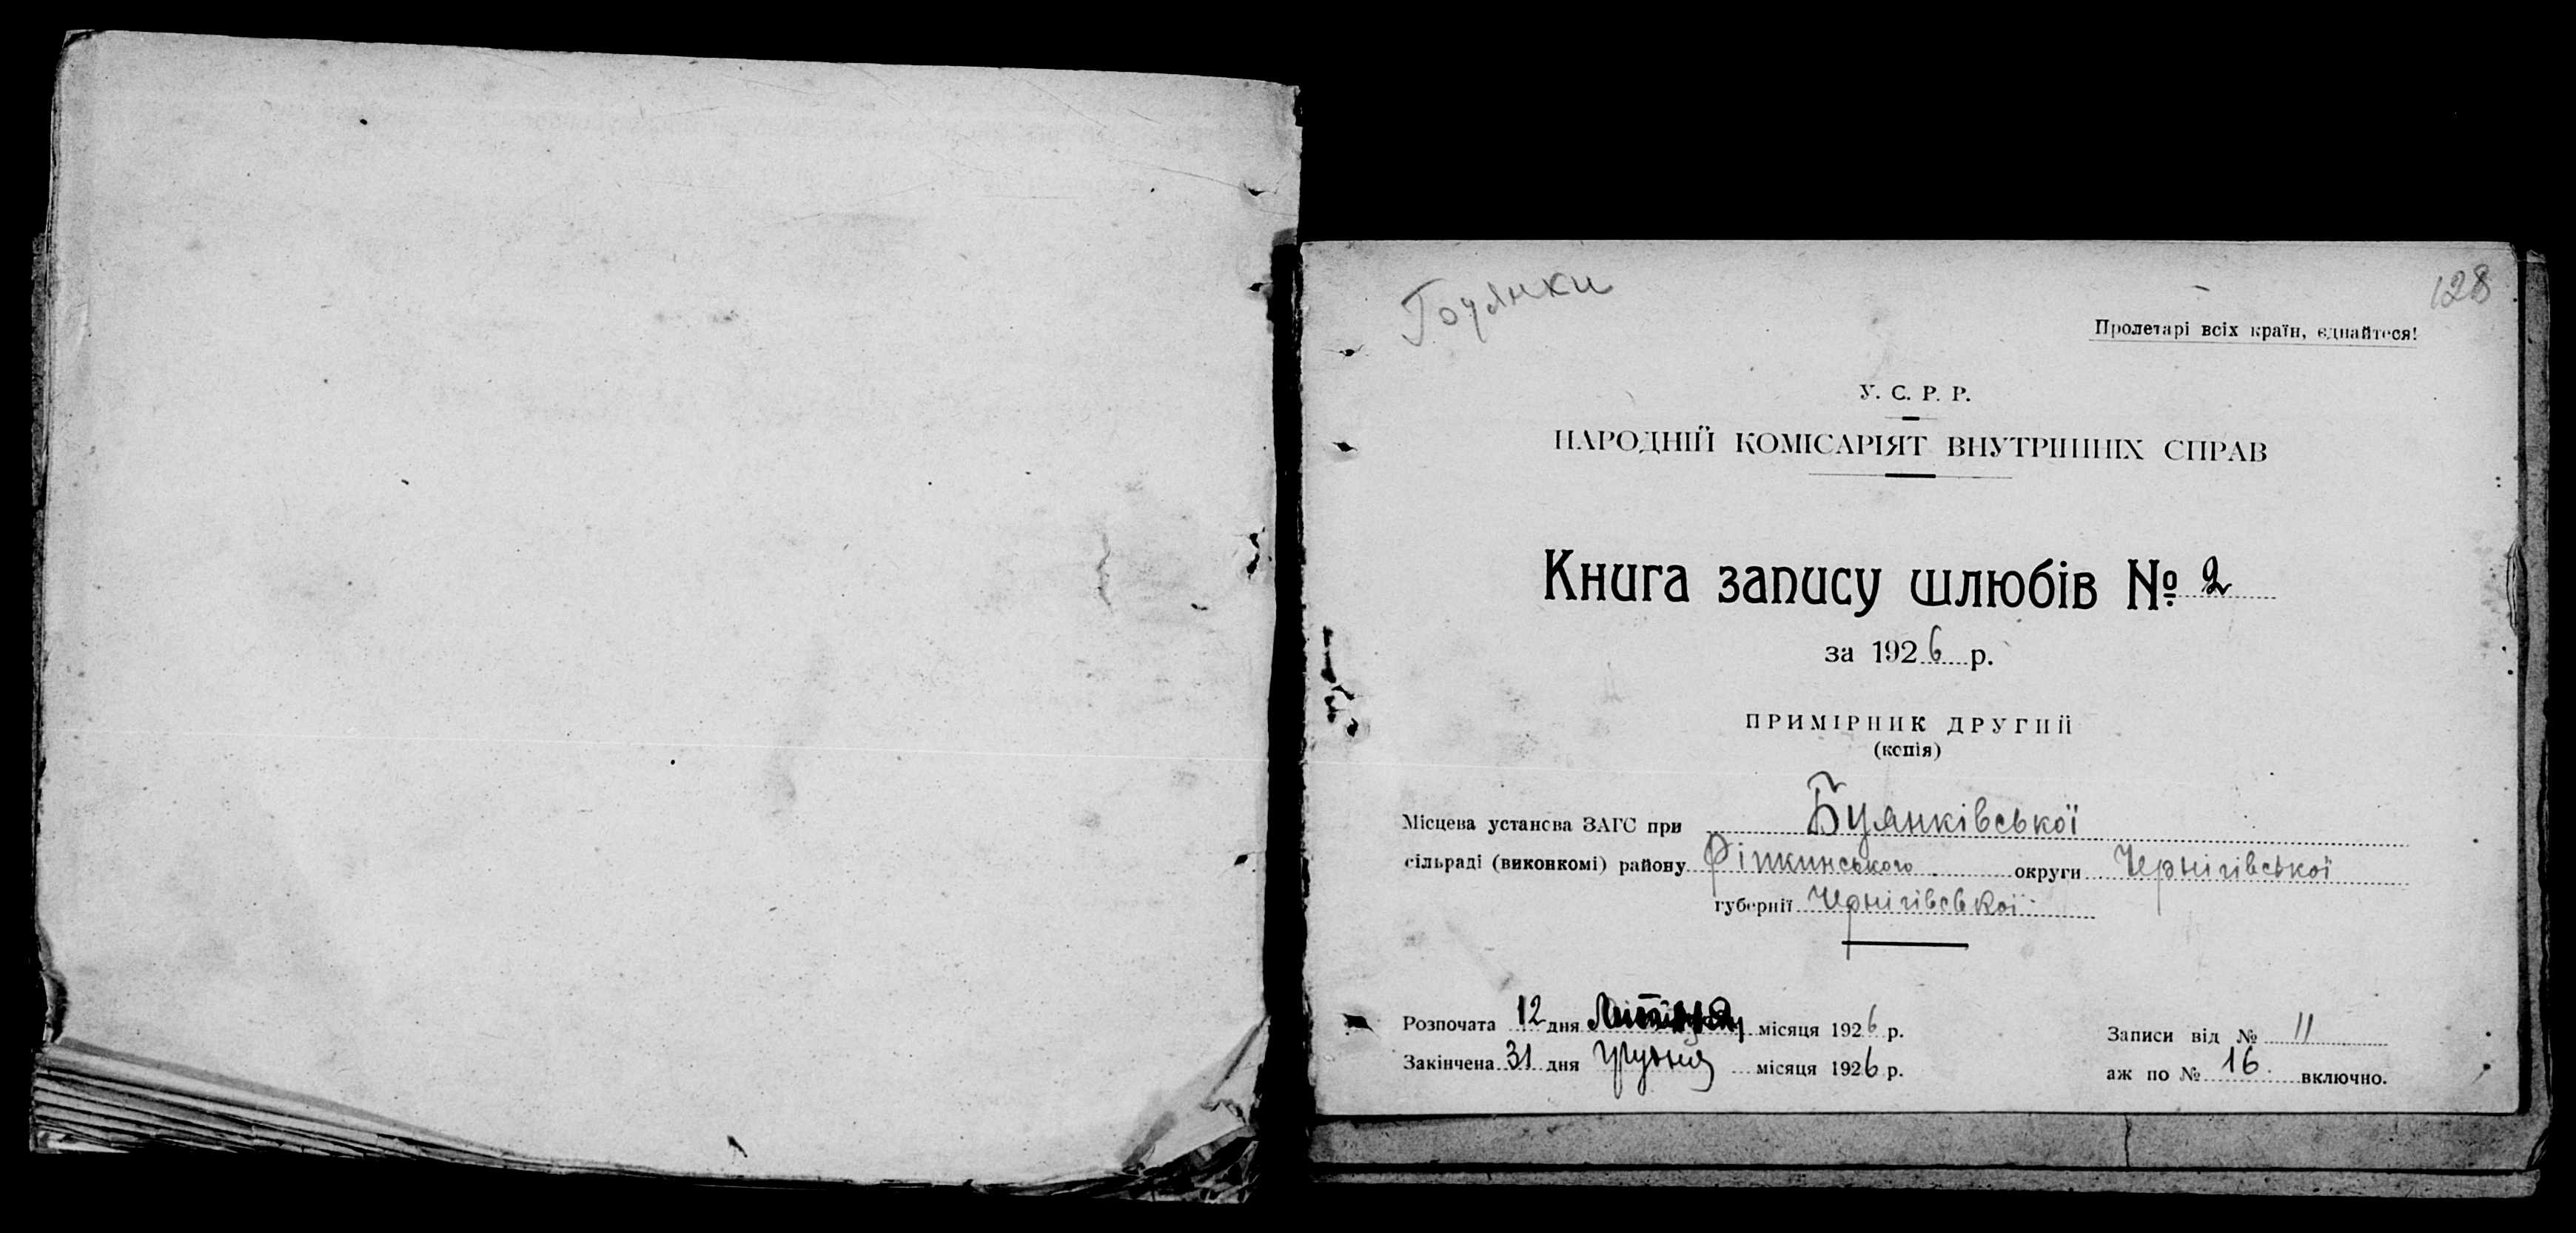 128
Пролетарі всіх країн, єднайтеся!
У. С. Р. Р.
НАРОДНІЙ КОМІСАРІЯТ ВНУТРІШНІХ СПРАВ
Книга запису шлюбів № 2
за 1926 р.
ПРИМІРНИК ДРУГИЙ
(копія)
Місцева установа ЗАГС при Буянківської
сільраді (виконкомі) району Ріпкинського округи Чернігівської
губернії Чернігівської
Розпочата 12 дня місяця 1926 р.
Закінчена 31 дня грудня місяця 1926 р.
Записи від № 11
аж по № 16 включно.